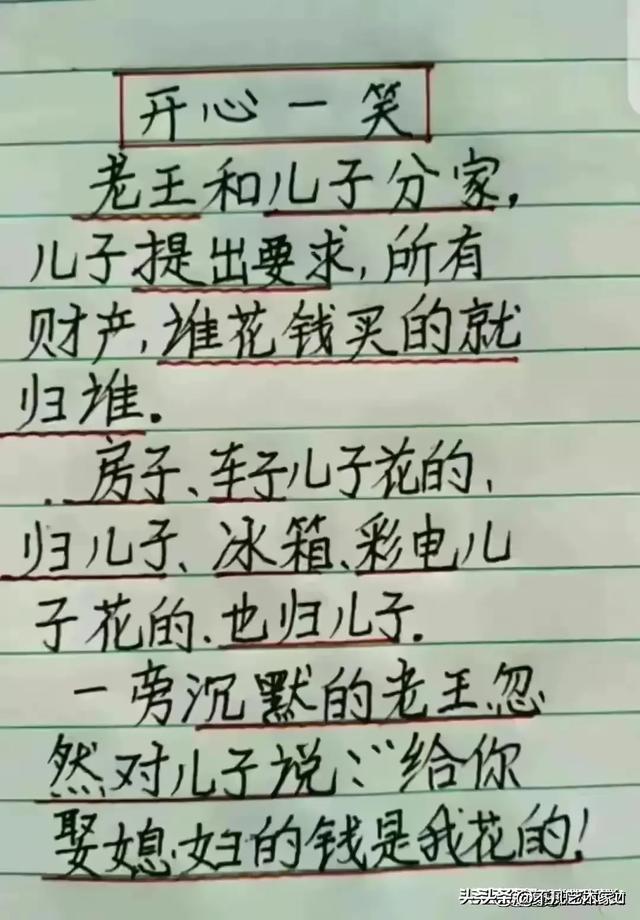 开心一笑
老王和儿子分家,
儿子提出要求,所有
财产,谁花钱买的就
归谁.
房子、车子儿子花的,
归儿子、冰箱、彩电儿
子花的、也归儿子.
一旁沉默的老王忽
然对儿子说:"给你
娶媳妇的钱是我花的!